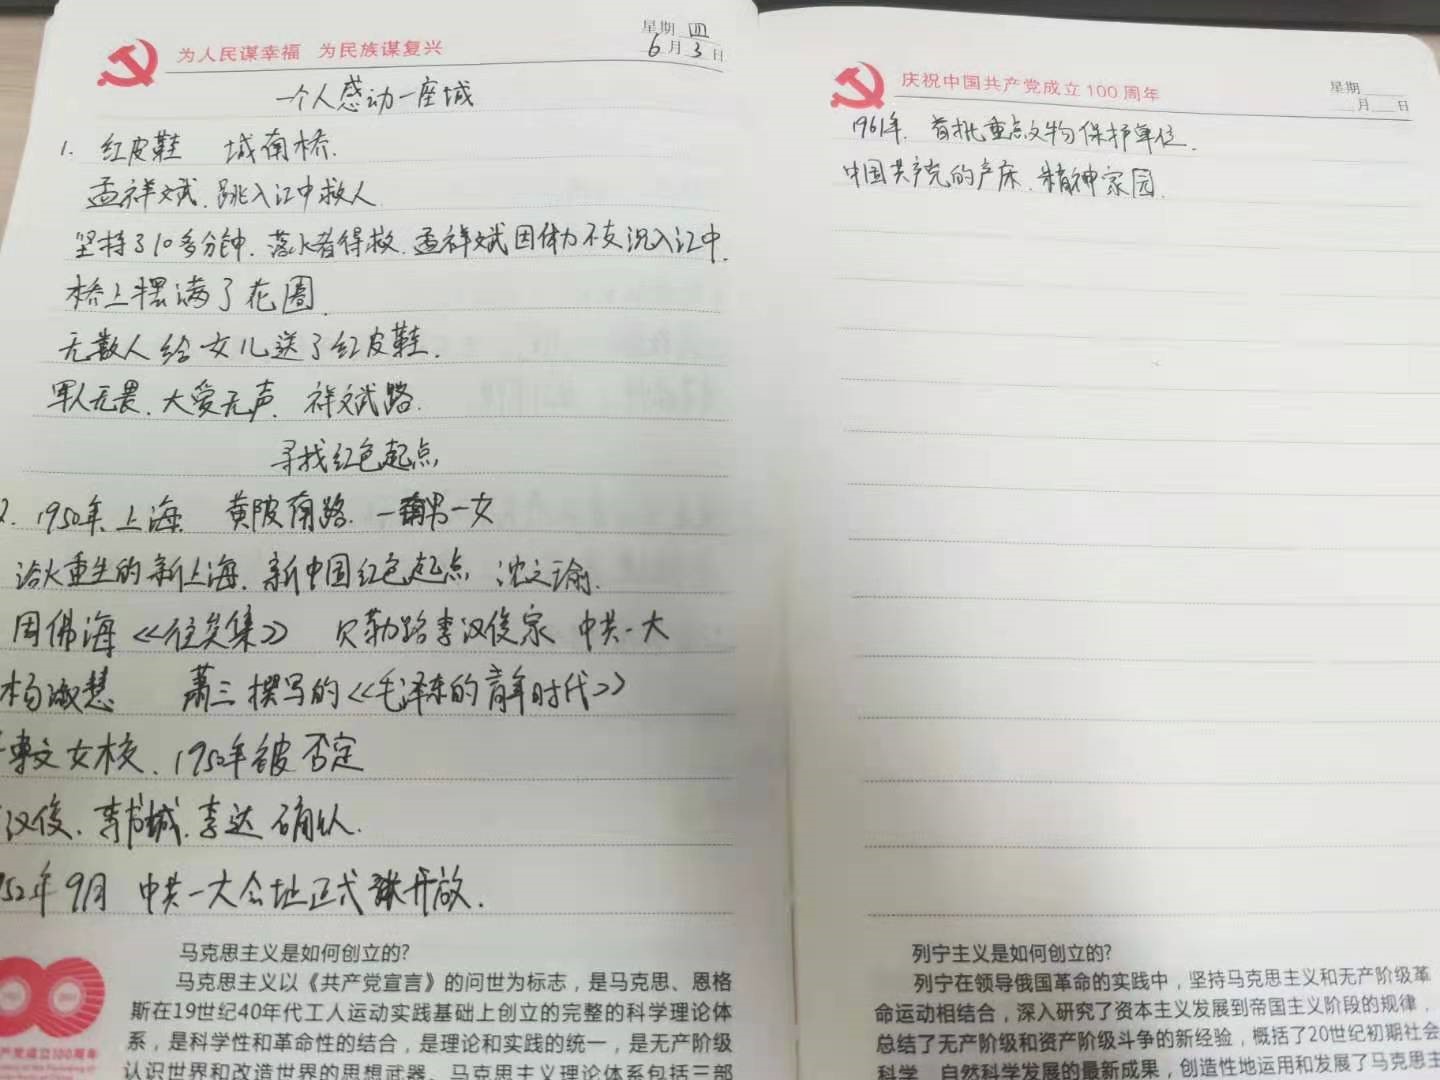 为人民谋幸福 为民族谋复兴
星期 四
6月3日
一个人感动一座城
1. 红皮鞋 城南桥.
孟祥斌.跳入江中救人
坚持了10多分钟.落水者得救.孟祥斌因体力不支沉入江中.
桥上摆满了花圈.
无数人给女儿送了红皮鞋.
军人无畏.大爱无声. 祥斌路.
寻找红色起点
2. 1950年.上海. 黄陂南路.一男一女
浴火重生的新上海.新中国红色起点 沈之瑜.
周佛海《往矣集》 贝勒路李汉俊家 中共一大
杨淑慧 萧三撰写的《毛泽东的青年时代》
文女校.1950年被否定
汉俊.李书城.李达确认.
52年9月 中共一大会址正式开放.
马克思主义是如何创立的?
马克思主义以《共产党宣言》的问世为标志，是马克思、恩格
斯在19世纪40年代工人运动实践基础上创立的完整的科学理论体
系，是科学性和革命性的结合，是理论和实践的统一，是无产阶级
认识世界和改造世界的思想武器。马克思主义理论体系包括三部
产党成立100周年
庆祝中国共产党成立100周年
星期
月 日
1961年. 首批重点文物保护单位.
中国共产党的产床.精神家园.
列宁主义是如何创立的?
列宁在领导俄国革命的实践中，坚持马克思主义和无产阶级革
命运动相结合，深入研究了资本主义发展到帝国主义阶段的规律，
总结了无产阶级和资产阶级斗争的新经验，概括了20世纪初期社会
科学、自然科学发展的最新成果，创造性地运用和发展了马克思主